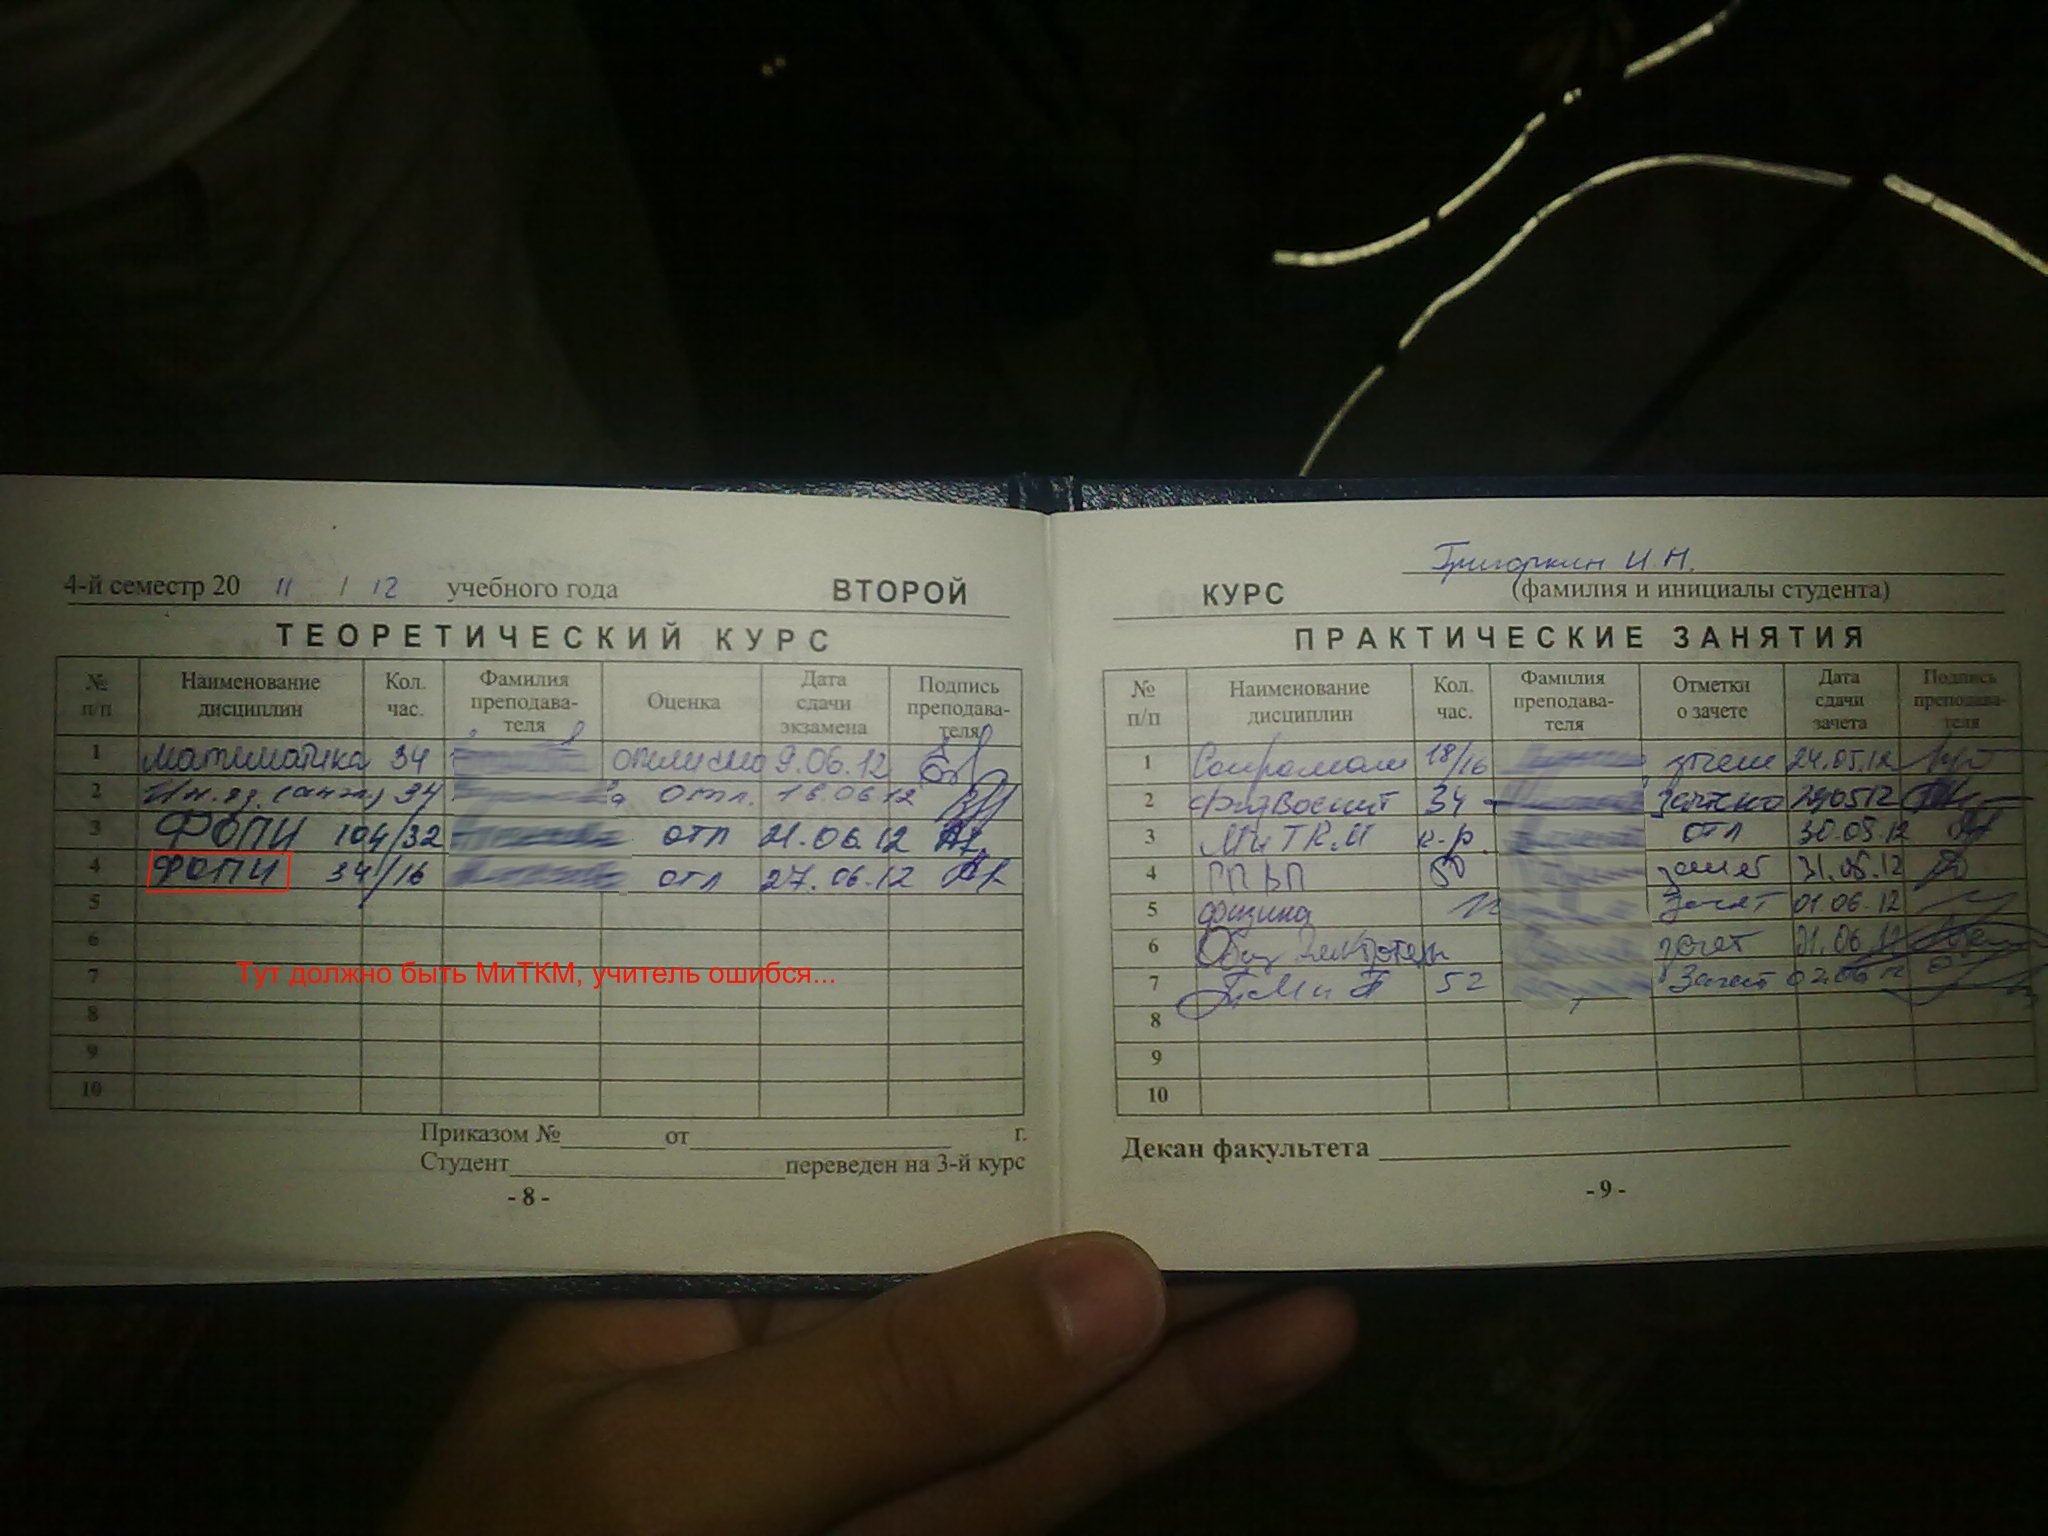 Григоркин И.Н.
4-й семестр 20 11 / 12 учебного года ВТОРОЙ
КУРС (фамилия и инициалы студента)
ТЕОРЕТИЧЕСКИЙ КУРС
№ п/п Наименование дисциплин Кол. час. Фамилия преподава-теля Оценка Дата сдачи экзамена Подпись преподава-теля
1 математика 34 отлично 9.06.12
2 Ин.яз. (англ) 34 отл. 16.06.12
3 ФОПИ 104/32 отл 21.06.12
4 ФОПИ 34/16 отл 27.06.12
5
6
7
Тут должно быть МиТКМ, учитель ошибся...
8
9
10
Приказом № от г.
Студент переведен на 3-й курс
- 8 -
ПРАКТИЧЕСКИЕ ЗАНЯТИЯ
№ п/п Наименование дисциплин Кол. час. Фамилия преподава-теля Отметки о зачете Дата сдачи зачета Подпись преподава-теля
1 Сопромат 18/16 зачет 24.05.12
2 Физвоспит 34 зачтено 290512
3 МиТКМ к.р. отл 30.05.12
4 зачет 31.05.12
5 физика зачет 01.06.12
6 зачет 01.06.12
7 52 Зачет 02.06.12
8
9
10
Декан факультета
- 9 -